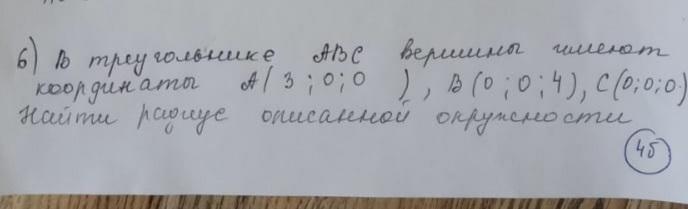 6) В треугольнике АВС вершины имеют
координаты А( 3 ; 0; 0 ), В (0 ; 0 ; 4), С (0; 0; 0)
Найти радиус описанной окружности
4б